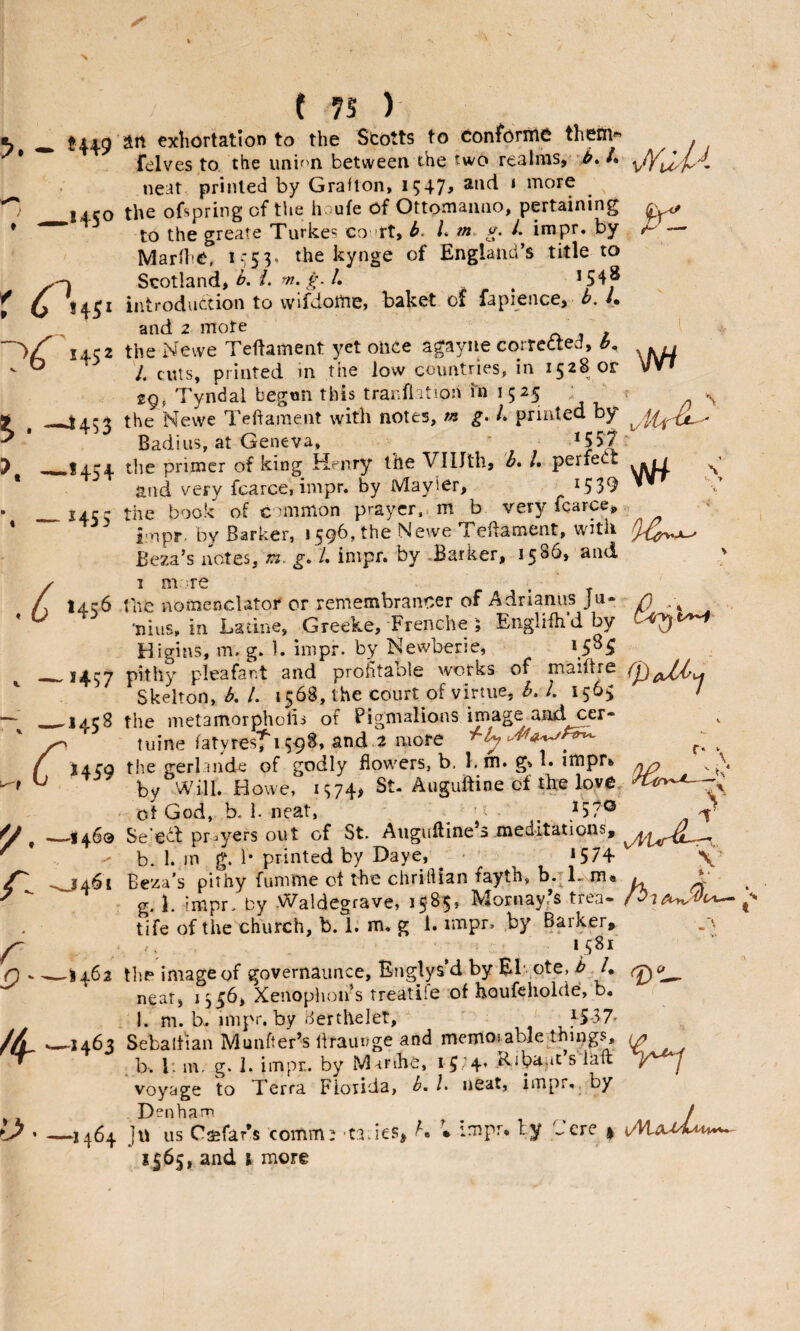 ( 75 )
1449 an exhortation to the Scotts to conforme them-
ſelves to the union between the two realms, b. l.
neat printed by Grafton, 1547, and 1 more
1450 the ofspring of the houſe of Ottomanno, pertaining
to the greate Turkes court, b. l. m g. l. impr. by
Marſhe, 1553, the kynge of England's title to
Scotland, b. l. m. g. l. 1548
1451 introduction to wiſdome, baket of ſapience, b. l.
and 2 more
1452 the Newe Teſtament yet once agayne corrected, b.
l. cuts, printed in the low countries, in 1528 or
29, Tyndal begun this tranſlation in 1525
1453 the Newe Teſtament with notes, m g. l. printed by
Badius, at Geneva, 1557
1454 the primer of king Henry the VIIIth, b. l. perfect
and very ſcarce, impr. by Mayler, 1539
1455 the book of common prayer, m b very ſcarce,
impr. by Barker, 1596, the Newe Teſtament, with
Beza's notes, m. g. l. impr. by Barker, 1586, and
1 more
1456 the nomenclator or remembrancer of Adrianus Ju-
nius, in Latine, Greeke, Frenche; Engliſh'd by
Higins, m. g. l. impr. by Newberie, 1585
1457 pithy pleaſant and profitable works of maiſtre
Skelton, b. l. 1568, the court of virtue, b. l. 1565
1458 the metamorphoſis of Pigmalions image and cer-
tuine ſatyres, 1598, and 2 more
1459 the gerlande of godly flowers, b. l. m. g. l. impr.
by Will. Howe, 1574, St. Auguſtine of the love
of God, b. l. neat, 1570
1460 Select prayers out of St. Auguſtine's meditations,
b. l. m g. l. printed by Daye, 1574
1461 Beza's pithy ſumme of the chriſtian fayth, b. l. m.
g. l. impr. by Waldegrave, 1585, Mornay's trea-
tiſe of the church, b. l. m. g l. impr. by Barker,
1581
1462 the image of governaunce, Englys'd by Elyote, b l.
neat, 1556, Xenophon's treatiſe of houſeholde, b.
l. m. b. impr. by Berthelet, 1537
1463 Sebaſtian Munſter's ſtraunge and memorable things,
b. l. m. g. l. impr. by Marſhe, 1574, Ribaut's laſt
voyage to Terra Florida, b. l. neat, impr. by
Denham
1464 Julius Cæſar's commentaries, b. l. impr. by Sere,
1565, and 1 more